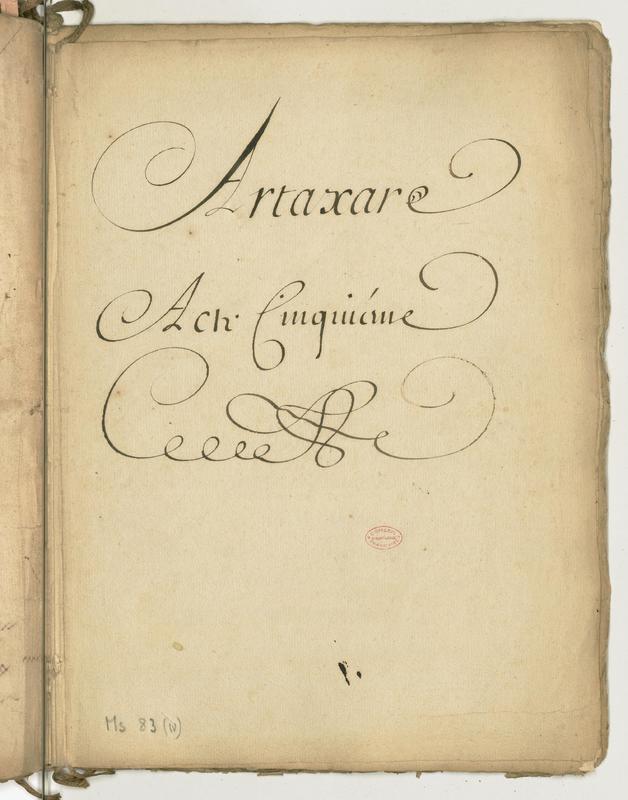 Artaxare
Acte Cinquiéme
Ms 83 (IV)